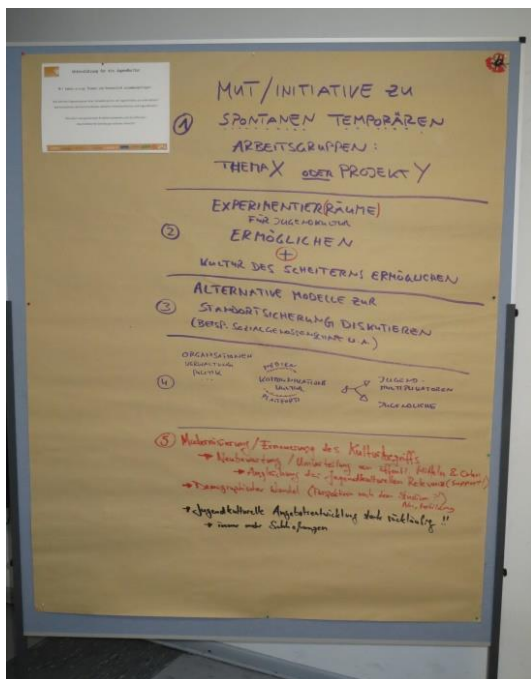 MUT/INITIATIVE ZU
① SPONTANEN TEMPORÄREN
ARBEITSGRUPPEN:
THEMA X ODER PROJEKT Y
EXPERIMENTIER(RÄUME)
FÜR JUGENDKULTUR
② ERMÖGLICHEN
+
KULTUR DES SCHEITERNS ERMÖGLICHEN
ALTERNATIVE MODELLE ZUR
③ STANDORTSICHERUNG DISKUTIEREN
(BEISP. SOZIALGENOSSENSCHAFT U.A.)
ORGANISATIONEN
VERWALTUNG
POLITIK
④
MEDIEN
KOMMUNIKATIONS
KULTUR
JUGEND-
MULTIPLIKATOREN
JUGENDLICHE
⑤ Modernisierung/Erneuerung des Kulturbegriffs
→ Neubewertung / Umverteilung von öffentl. Mitteln &
→ Angleichung der jugendkulturellen Relevanz (Support!)
→ Demographischer Wandel (Perspektiven nach dem Studium!!)
→ Jugendkulturelle Angebotsentwicklung stark rückläufig!!
→ immer mehr Schließungen